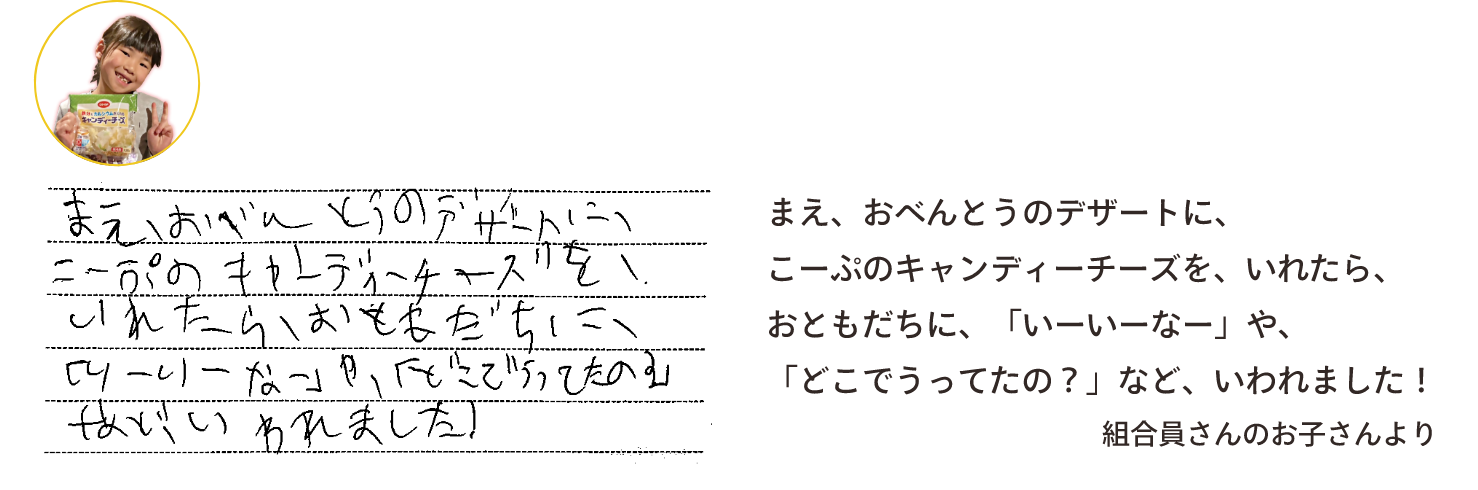 キャンディーチーズ
まえ、おべんとうのデザートに、
こーぷのキャンディーチーズを、
いれたら、おともだちに、
「いーいーなー」や、「どこでうってたの?」
など、いわれました!
まえ、おべんとうのデザートに、
こーぷのキャンディーチーズを、いれたら、
おともだちに、「いーいーなー」や、
「どこでうってたの？」など、いわれました！
組合員さんのお子さんより